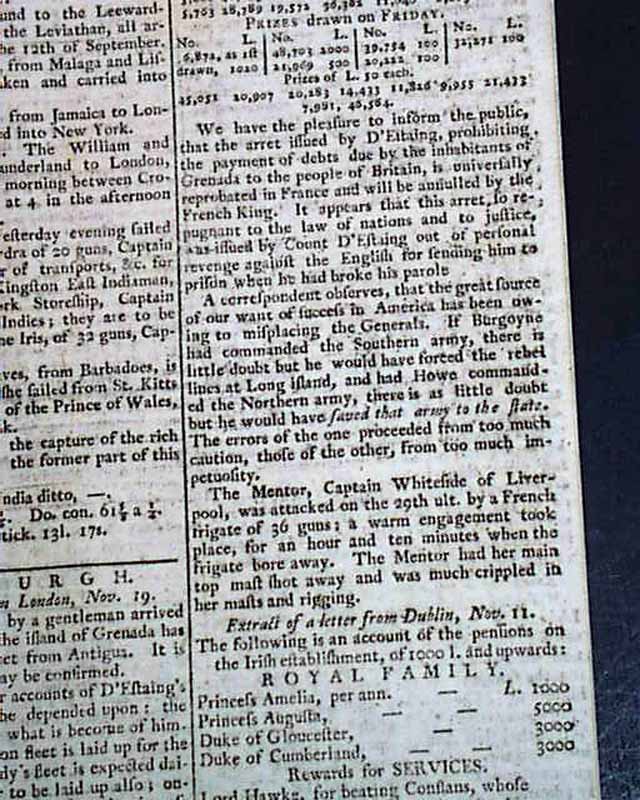 and to the Leeward-
the Leviathan, all ar-
he 12th of September.
from Malaga and Lis-
aken and carried into
from Jamaica to Lon-
d into New York.
The William and
underland to London,
morning between Cro-
at 4 in the afternoon
efterday evening failed
dra of 20 guns, Captain
r of tranſports, &c. for
Kingſton Eaſt Indiaman,
rk Storeſhip, Captain
Indies; they are to be
he Iris, of 32 guns, Cap-
ves, from Barbadoes, is
ſhe ſailed from St. Kitts
of the Prince of Wales,
k.
the capture of the rich
the former part of this
ndia ditto, —.
Do. con. 61⅝ a ½.
tick. 13l. 17s.
U R G H.
m London, Nov. 19.
by a gentleman arrived
the iſland of Grenada has
et from Antigua. It is
ay be confirmed.
r accounts of D'Eſtaing's
be depended upon: the
what is become of him.
on fleet is laid up for the
dy's fleet is expected dai-
to be laid up alſo; on-
5,703 28,789 19,572
PRIZES drawn on FRIDAY.
No. L. No. L. No. L. No. L.
6,872, as 1ſt 48,703 2000 39,754 100 32,271 100
drawn, 1020 21,969 500 20,222 100
Prizes of L. 50 each.
45,051 20,907 20,283 14,433 11,826 9,955 21,433
7,991, 46,564.
We have the pleaſure to inform the public,
that the arret iſſued by D'Eſtaing, prohibiting
the payment of debts due by the inhabitants of
Grenada to the people of Britain, is univerſally
reprobated in France and will be annulled by the
French King. It appears that this arret, ſo re-
pugnant to the law of nations and to juſtice,
was iſſued by Count D'Eſtaing out of perſonal
revenge againſt the Engliſh for ſending him to
priſon when he had broke his parole
A correſpondent obſerves, that the great ſource
of our want of ſucceſs in America has been ow-
ing to miſplacing the Generals. If Burgoyne
had commanded the Southern army, there is
little doubt but he would have forced the rebel
lines at Long iſland, and had Howe command-
ed the Northern army, there is as little doubt
but he would have ſaved that army to the ſtate.
The errors of the one proceeded from too much
caution, thoſe of the other, from too much im-
petuoſity.
The Mentor, Captain Whiteſide of Liver-
pool, was attacked on the 29th ult. by a French
frigate of 36 guns; a warm engagement took
place, for an hour and ten minutes when the
frigate bore away. The Mentor had her main
top maſt ſhot away and was much crippled in
her maſts and rigging.
Extract of a letter from Dublin, Nov. 11.
The following is an account of the penſions on
the Iriſh eſtabliſhment, of 1000 l. and upwards:
R O Y A L F A M I L Y.
Princeſs Amelia, per ann. — L. 1000
Princeſs Auguſta, — — 5000
Duke of Glouceſter, — 3000
Duke of Cumberland, — — 3000
Rewards for SERVICES.
Lord Hawke, for beating Conflans, whoſe